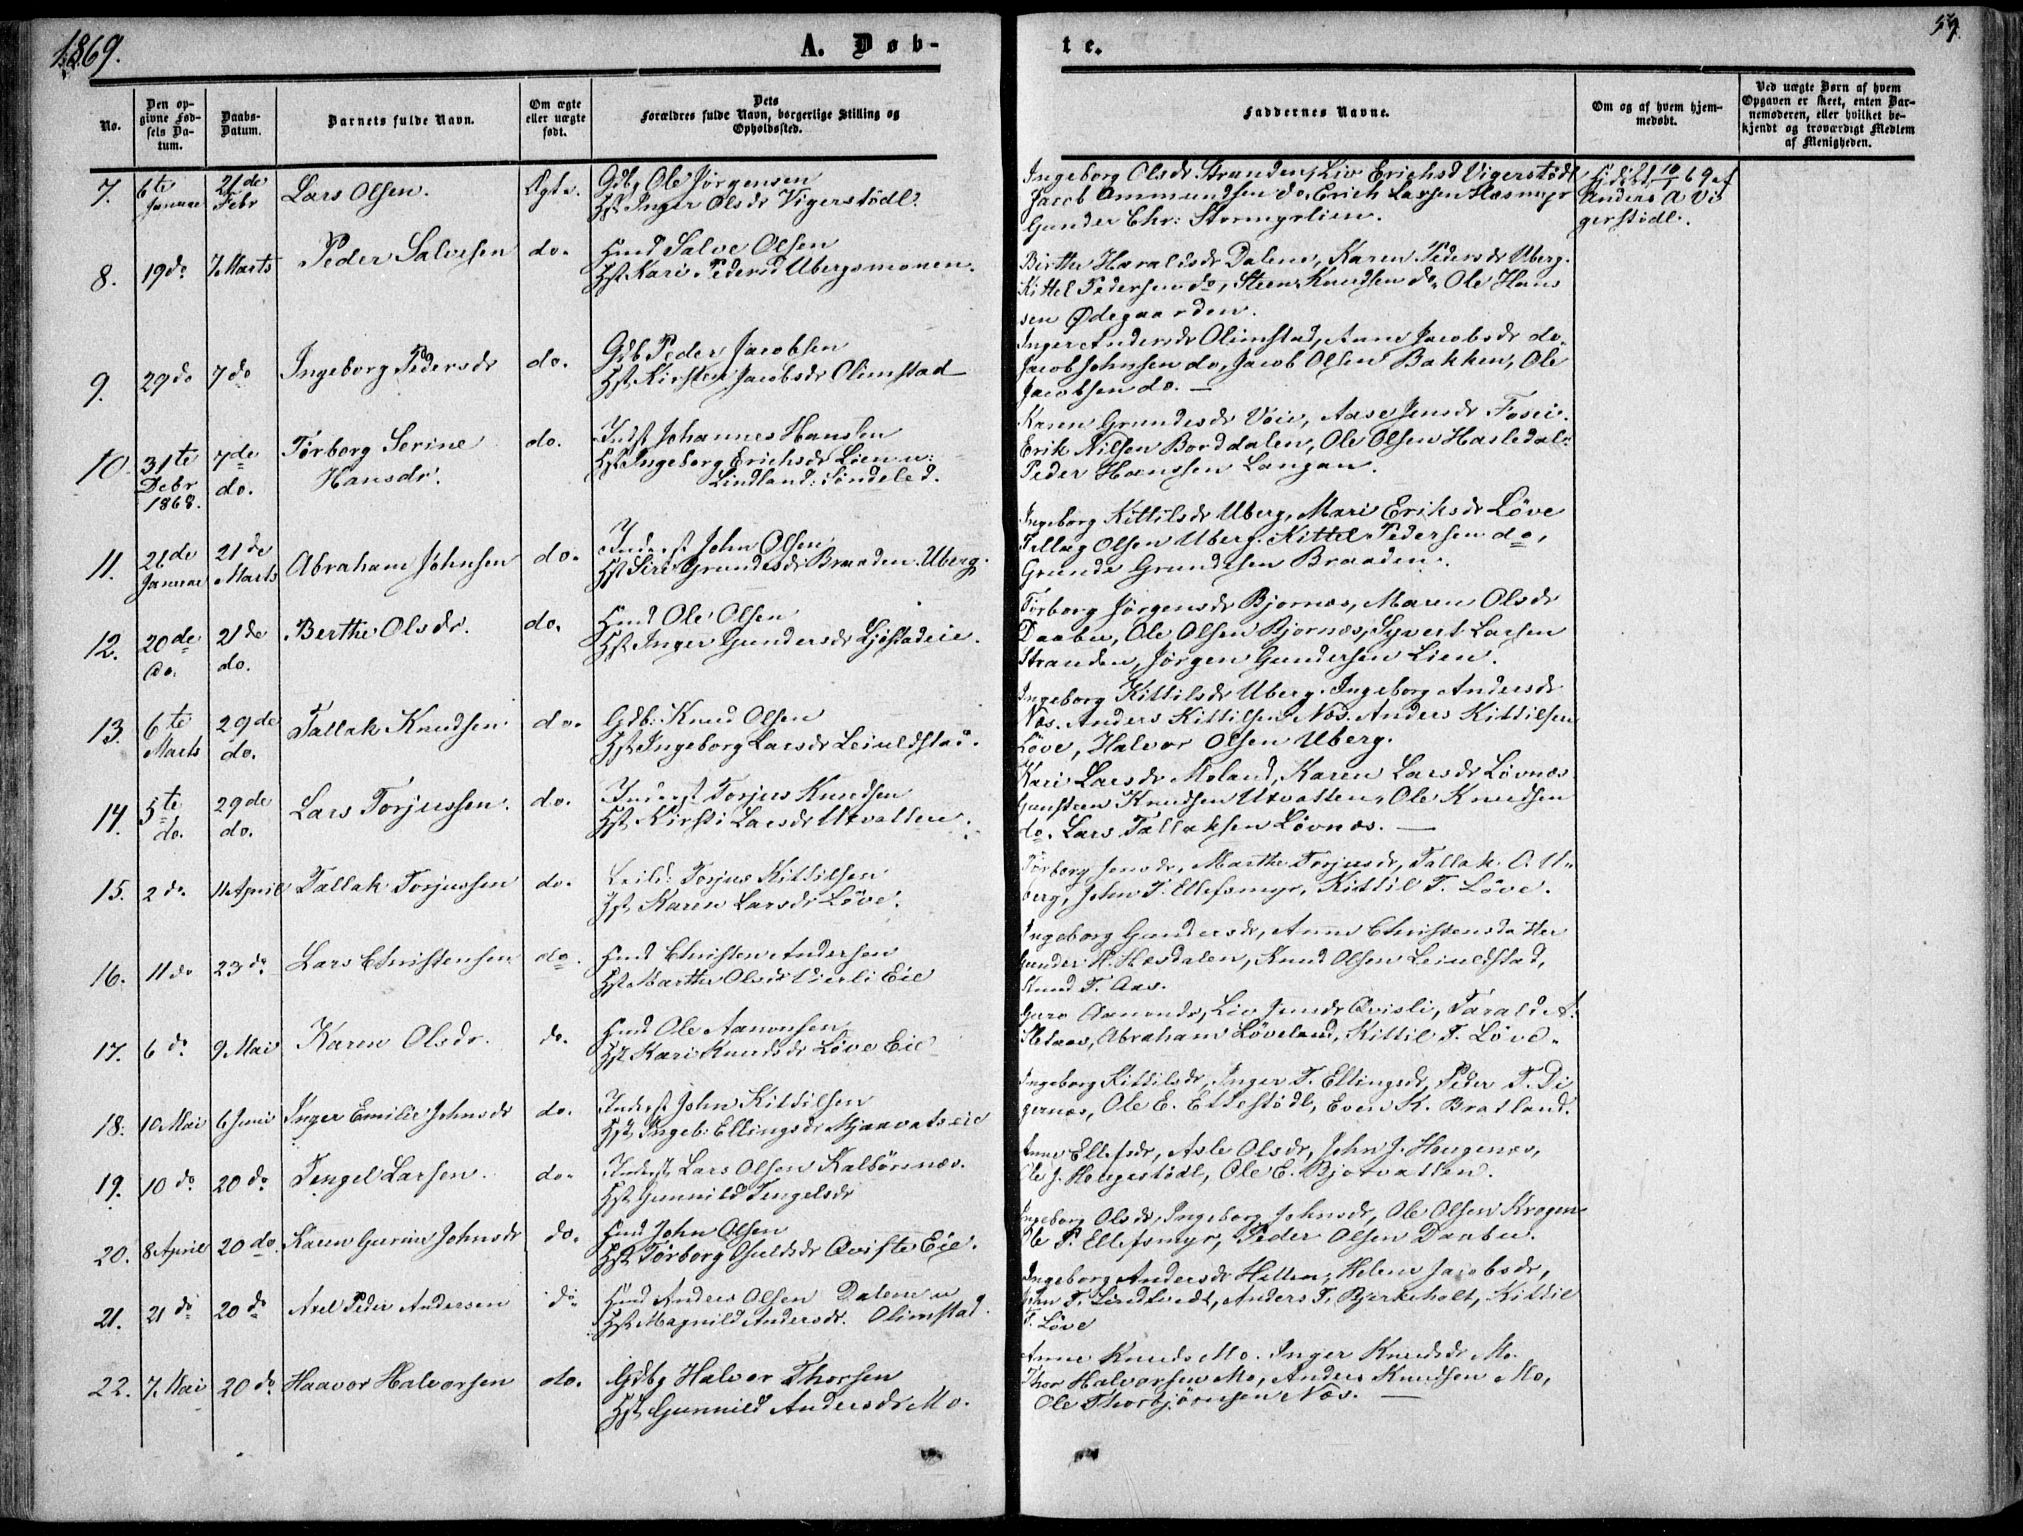 1869.
A. Døb-
te.
59.
No.
Den op-
givne Fød-
sels Da-
tum.
Daabs-
Datum.
Barnets fulde Navn.
Om ægte
eller uægte
født.
Dets
Forældres fulde Navn, borgerlige Stilling og
Opholdssted.
Faddernes Navne.
Om og af hvem hjem-
medøbt.
Ved uægte Børn af hvem
Opgaven er skeet, enten Bar-
nemoderen, eller hvilket be-
kjendt og troværdigt Medlem
af Menigheden.
7.
6te
Januar
21de
Febr
Lars Olsen.
Ægte.
Gdbg Ole Jørgensen
Hst Inger Olsdr Vigerstødl.
Ingeborg Olsdr Stranden, Liv Erichsd Vigerstødl
Jacob Ammundsen do, Erich Larsen Hasmyr
Gunder Chr: Stormyrlien.
10/1 69 af
Anders A Vi
gerstødl.
8.
19 do
7 Marts
Peder Salvesen
do.
Hmd Salve Olsen
Hst Kari Pedersd Ubergsmonen.
Birthe Haraldsdr Dalene, Karen Pedersdr Uberg.
Kittel Pedersen do, Steen Knudsen do, Ole Hans
sen Ødegaarden.
9.
29 do
7 do
Ingeborg Pedersdr
do.
Gdb Peder Jacobsen
Hst Kirsten Jacobsdr Olimstad
Inger Andersdr Olimstad, Anne Jacobsdr do.
Jacob Johnsen do, Jacob Olsen Bakken, Ole
Jacobsen do. —
10.
31te
Debr
1868.
7de
do.
Torborg Serine
Hansdr.
do.
Indst Johannes Hansen
Hst Ingeborg Erichsdr Lien u:
Lindland: Søndeled.
Karen Grundesdr Voie, Aase Jensdr Fosei.
Erik Nilsen Borddalen, Ole Olsen Hasledal.
Peder Hanssen Langan.
11.
21de
Januar
21de
Marts
Abraham Johnsen
do.
Inderst John Olsen
Hst Siri Grundesdr Braaden. Uberg.
Ingeborg Kittilsdr Uberg, Mari Eriksdr Løve
Tellag Olsen Uberg. Kittel Pedersen do,
Grunde Grundesen Braaden.
12.
20de
do.
21de
do.
Berthe Olsdr.
do.
Hmd Ole Olsen
Hst Inger Gundersdr Ljøstadeie.
Torborg Jørgensdr Bjornæs, Maren Olsdr
Daabu, Ole Olsen Bjornæs, Syvert Larsen
Stranden, Jørgen Gundersen Lien.
13.
6te
Marts
29de
do.
Tallak Knudsen
do.
Gdb: Knud Olsen
Hst Ingeborg Larsdr Leiuldstad.
Ingeborg Kittilsdr Uberg. Ingeborg Andersdr
Næs. Anders Kittilsen Næs. Anders Kittilsen
Løve, Halvor Olsen Uberg.
14.
5te
do.
29de
do.
Lars Torjussen.
do.
Inderst Torjus Knudsen
Hst Kirsti Larsdr Utvatten.
Kari Larsdr Moland, Karen Larsdr Løvnæs
Gunsteen Knudsen Utvatten, Ole Knudsen
do. Lars Tallaksen Løvnæs. —
15.
2 do
11 April
Tallak Torjussen
do.
Leild: Torjus Kittilsen
Hst Karen Larsdr Løve.
Torborg Jensdr, Marthe Torjusdr, Tallak O. U-
berg, John T. Ellefsmyr, Kittil T. Løve.
16.
11 do
23 do
Lars Christensen
do.
Hmd Christen Andersen
Hst Marthe Olsdr Vierli Eie
Ingeborg Gundersdr, Anne Christensdr
Gunder H. Hæsdalen, Knud Olsen Leiuldstad,
Knud T. Aas.
17.
6 do
9 Mai
Karen Olsdr.
do.
Hmd Ole Aanonsen
Hst Kari Knudsdr Løve Eie
Guro Aamondr, Liv Jensdr Qvisli, Tarald A.
Abraham Løveland, Kittil T. Løve.
18.
10 Mai
6 Juni
Inger Emilie Johnsdr
do.
Inderst John Kittilsen
Hst Ingeb: Ellingsdr Mjaavatseie
Ingeborg Kittilsdr, Inger T. Ellingsdr, Peder T. Di
gernæs, Ole E. Ettestødl, Even K. Bratland.
19.
10 do
20 do
Tengel Larsen.
do.
Inderst Lars Olsen Kalbørsnæs.
Hst Gunnild Tengelsdr
Anne Ellefsdr, Asle Olsdr, John J. Hougenæs,
Ole J. Hougestødl, Ole E. Bjotvatten.
20.
8 April
20 do
Karen Gurine Johnsdr
do.
Hmd John Olsen
Hst Torborg Gulddr Qviste Eie.
Ingeborg Olsdr, Ingeborg Johnsdr, Ole Olsen Krogen
Ole T. Ellefsmyr, Peder Olsen Daabu.
21.
21 do
20 do
Axel Peder Andersen
do
Hmd Anders Olsen Dalene u
Hst Magnild Andersdr. Olimstad.
Ingeborg Andersdr Hellen, Helene Jacobsdr,
John T. Lindtvedt, Anders T. Bjerkeholt, Kittil
T. Løve
22.
7 Mai
20 do
Haavor Halvorsen
do.
Gdbg Halvor Thorsen
Hst Gunnild Andersdr Mo.
Anne Knuds Mo. Inger Knudsdr Mo.
Thor Halvorsen Mo, Anders Knudsen Mo,
Ole Thorbjørnsen Næs. —